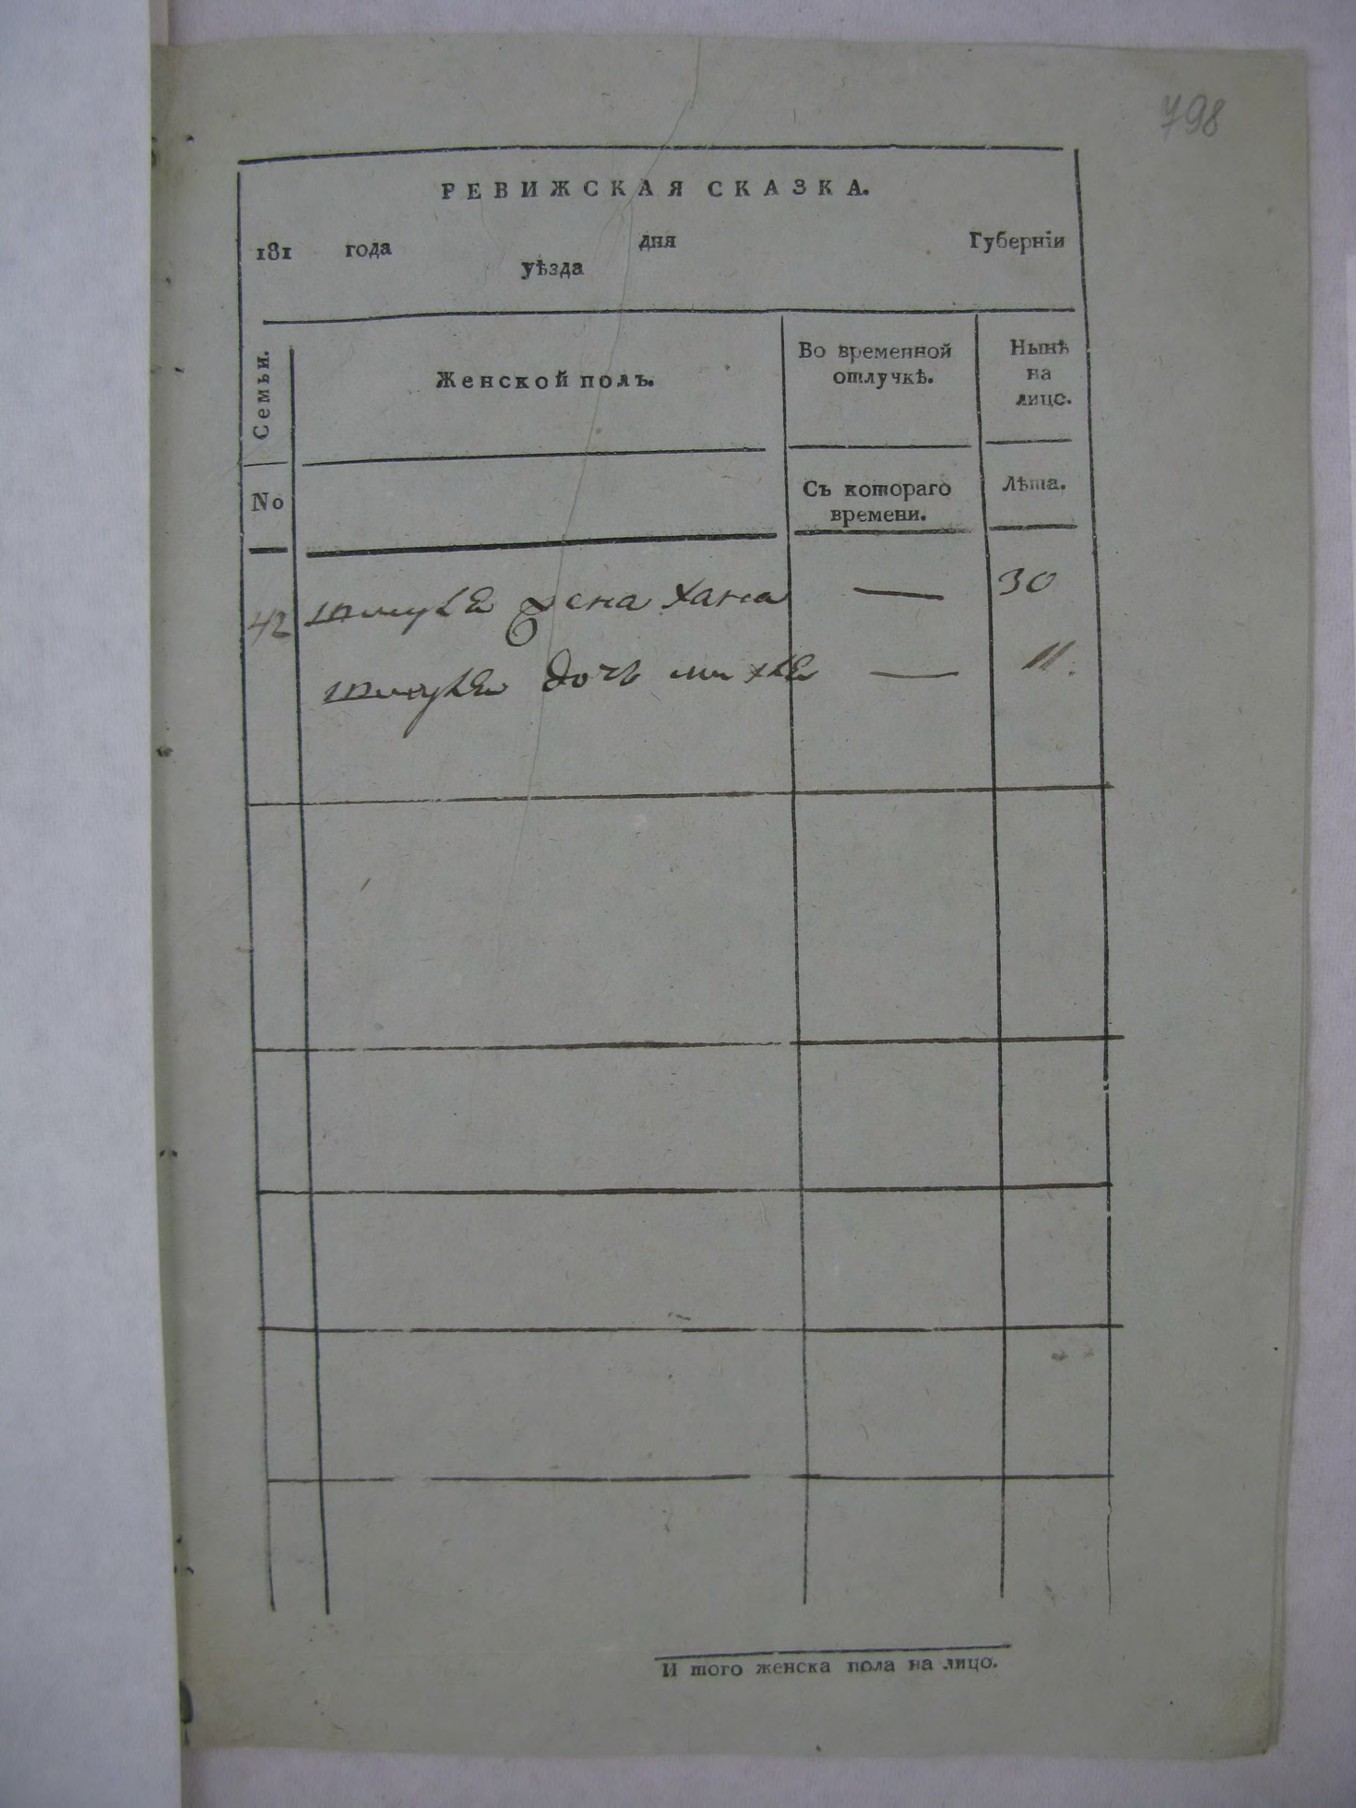 798
РЕВИЖСКАЯ СКАЗКА.
181 года дня Губерніи
уѣзда
Семьи. Женской полъ. Во временной отлучкѣ. Нынѣ на лицо.
No Съ котораго времени. Лѣта.
42 жена хана — 30
дочь — 11.
И того женска пола на лицо.